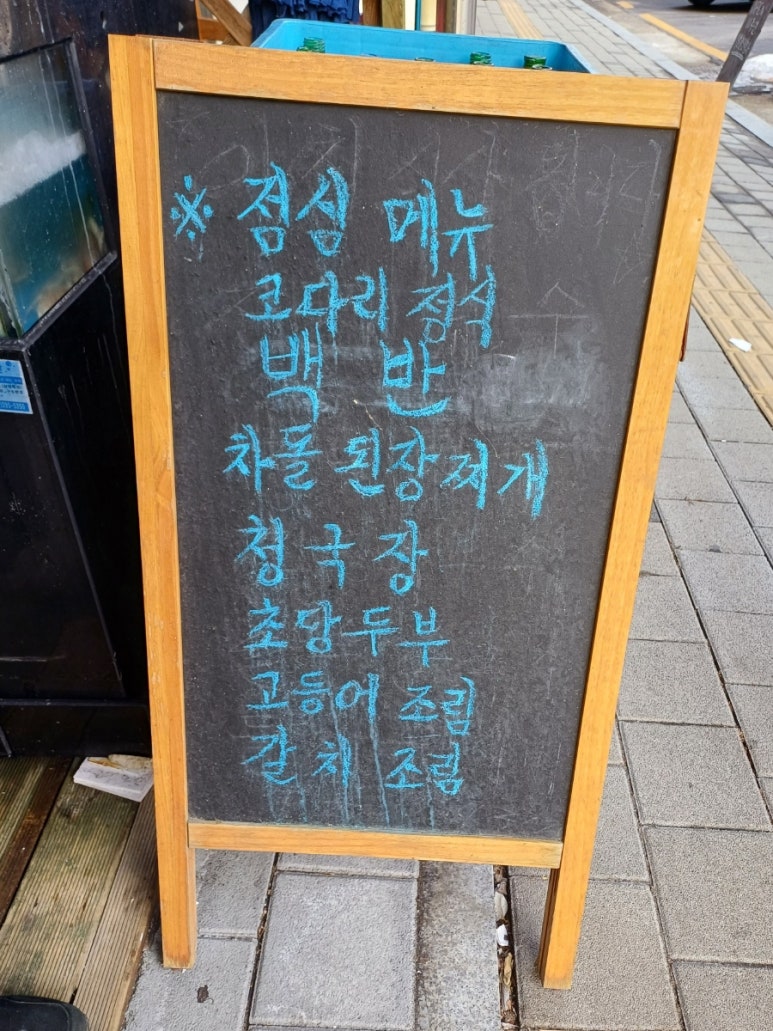 ※ 점심 메뉴
코다리 정식
백 반
차돌 된장찌개
청국장
초당두부
고등어 조림
갈치 조림